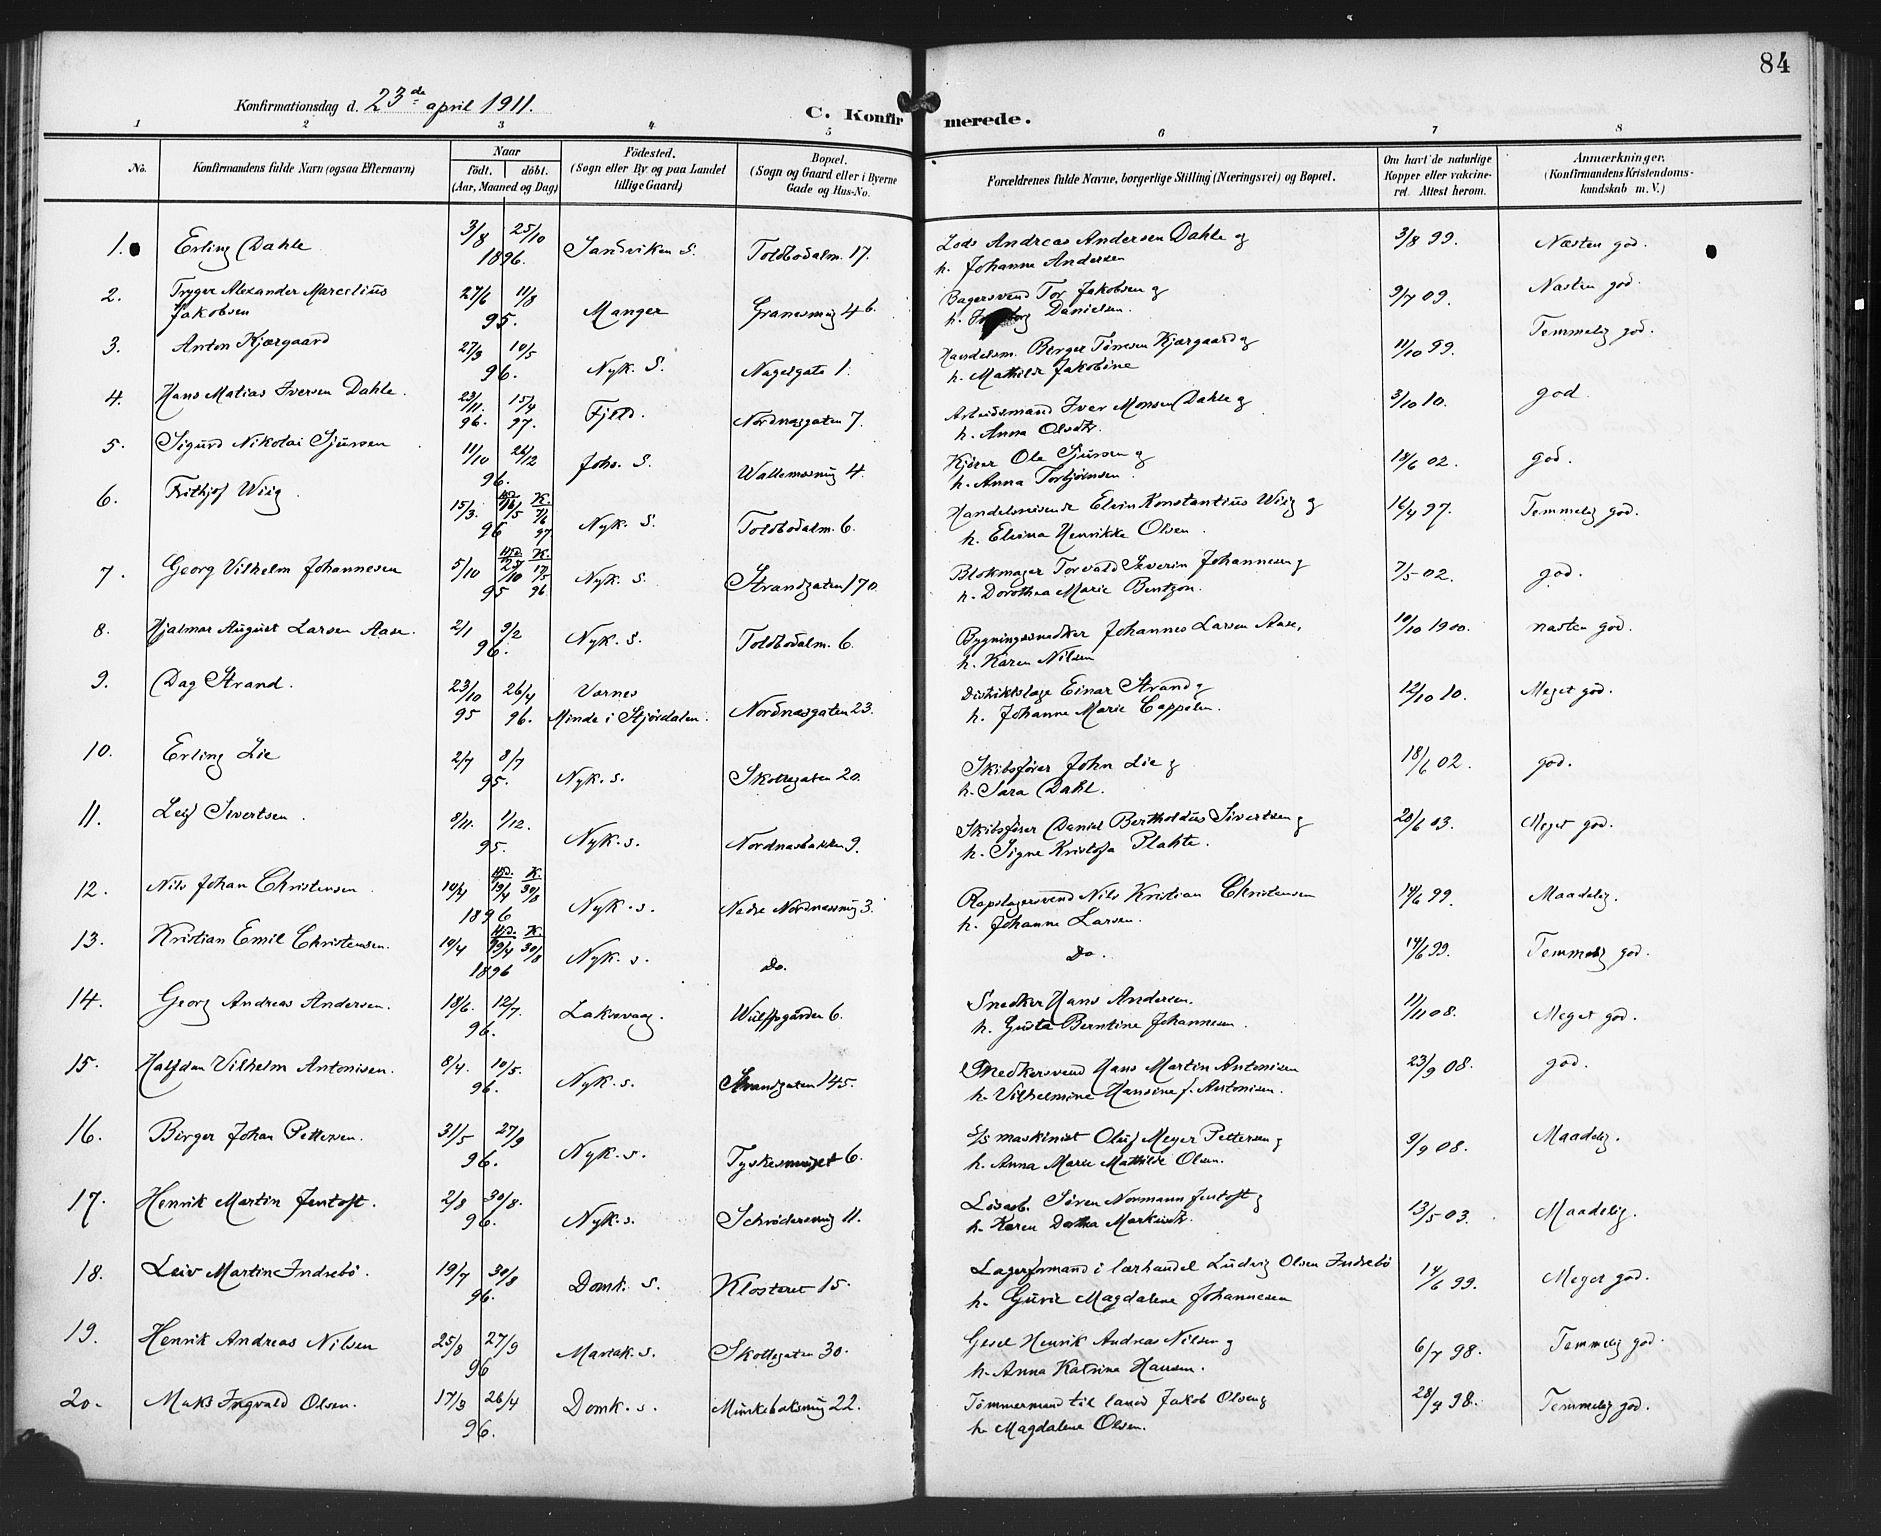 84
Konfirmationsdag d. 23de april 1911.
C. Konfirmerede.
1 2 3 4 5 6 7 8
No. Konfirmandens fulde Navn (ogsaa Efternavn) Naar født. døbt. (Aar, Maaned og Dag) Fødested. (Sogn eller By og paa Landet tillige Gaard) Bopæl. (Sogn og Gaard eller i Byerne Gade og Hus-No. Forældrenes fulde Navne, borgerlige Stilling (Næringsvei) og Bopæl. Om havt de naturlige Kopper eller vakcineret. Attest herom. Anmærkninger. (Konfirmandens Kristendomskundskab m. V.)
1. Erling Dahle 3/8 25/10 1896. Sandviken S. Toldbodalm. 17. Lods Andreas Andersen Dahle og
h. Johanne Andersen 3/8 99. Næsten god.
2. Trygve Alexander Marcelius
Jakobsen 27/6 11/8 95. Manger Granesmug 4b. Bagersvend Tor Jakobsen og
h. Danielsen. 9/7 09. Næsten god.
3. Anton Kjærgaard 27/3 10/5 96. Nyk. S. Nagelgate 1. Handelsm. Berger Tønnesen Kjærgaard og
h. Mathilde Jakobine 11/10 99. Temmelig god.
4. Hans Matias Iversen Dahle. 23/11. 96. 15/4 97. Fjeld. Nordnæsgaten 7. Arbeidsmand Iver Monsen Dahle og
h. Anna Olsdtr. 3/10 10. god
5. Sigurd Nikolai Sjursen 11/10 26/12 96. Johs. S. Wallemsmug 4 Kjører Ole Sjursen og
h. Anna Torbjørnsen. 18/6 02. god.
6. Frithjof Wiig 15/3. Hjd. 16/5 K. 7/6 96 97 Nyk. S. Toldbodalm. 6. Handelsreisende Elvin Konstantius Wiig og
h. Elvina Henrikke Olsen. 16/4 97. Temmelig god.
7. Georg Vilhelm Johannesen 5/10 Hjd. 25/10 K. 17/5 95 96 Nyk. S. Strandgaten 170. Blokmager Torvald Severin Johannesen og
h. Dorothea Marie Bentzon. 7/5 02. god.
8. Hjalmar August Larsen Aase. 2/1 9/2 96. Nyk. S. Toldbodalm. 6. Bygningssnedker Johannes Larsen Aase,
h. Karen Nilsen 10/10 1900. næsten god.
9. Dag Strand. 23/10 95 26/4 96. Værnes
Minde i Stjørdalen. Nordnæsgaten 23. Distriktslæge Einar Strand og
h. Johanne Marie Cappelen. 12/10 10. Meget god.
10. Erling Lie 2/7 8/7 95. Nyk. S. Skottegaten 20. Skibsfører John Lie og
h. Sara Dahl. 18/6 02. god.
11. Leif Sivertsen. 8/11. 1/12. 95. Nyk. S. Nordnæsbakken 9. Skibsfører Daniel Bertholdus Sivertsen og
h. Signe Kristofa Plahte. 28/6 03. Meget god.
12. Nils Johan Christensen 10/4 Hjd. 19/4 K. 30/8 1896 Nyk. S. Nedre Nordnæsmug 3. Repslagersvend Nils Kristian Christensen
h. Johanne Larsen. 14/6 99. Maadelig.
13. Kristian Emil Christensen. 10/4 Hjd. 19/4 K. 30/8 1896 Nyk. S. Do. Do. 14/6 99. Temmelig god.
14. Georg Andreas Andersen. 18/6. 12/7. 96. Laksevaag. Wulffsgården 6. Snedker Hans Andersen.
h. Gusta Berntine Johannesen. 11/11 08. Meget god.
15. Halfdan Vilhelm Antonisen. 8/4. 10/5. 96. Nyk. S. Strandgaten 145. Snedkersvend Hans Martin Antonisen
h. Vilhelmine Hansine f. Antonisen. 23/9 08. god.
16. Birger Johan Pettersen. 31/5 27/9 96. Nyk. S. Tyskesmuget 6. S/S maskinist Oluf Meyer Pettersen og
h. Anna Marie Mathilde Olsen. 9/9 08. Maadelig.
17. Henrik Martin Jentoft. 2/8 30/8. 96. Nyk. S. Schrødersmug 11. Løsarb. Søren Normann Jentoft og
h. Karen Dorthea 13/5 03. Maadelig.
18. Leiv Martin Indrebø. 19/7 30/8 96. Domk. S. Klosteret 15. Lagerformand i lærhandel Ludvig Olsen Indrebø
h. Gurie Magdalene Johannesen 14/6 99. Meget god.
19. Henrik Andreas Nilsen 25/8 27/9 96 Mariak. S. Skottegaten 30. Gesel Henrik Andreas Nilsen og
h. Anna Katrina Hansen. 6/7 98. Temmelig god.
20. Maks Ingvald Olsen. 17/3 26/4 96. Domk. S. Munkebøksmug 22. Tømmermand til lands Jakob Olsen og
h. Magdalene Olsen. 28/4 98. Temmelig god.